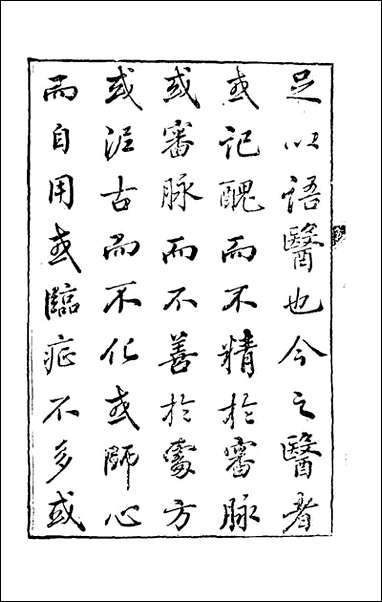 足以語醫也今之醫者
或記醜而不精於審脉
或審脉而不善於處方
或泥古而不化或師心
而自用或臨症不多或